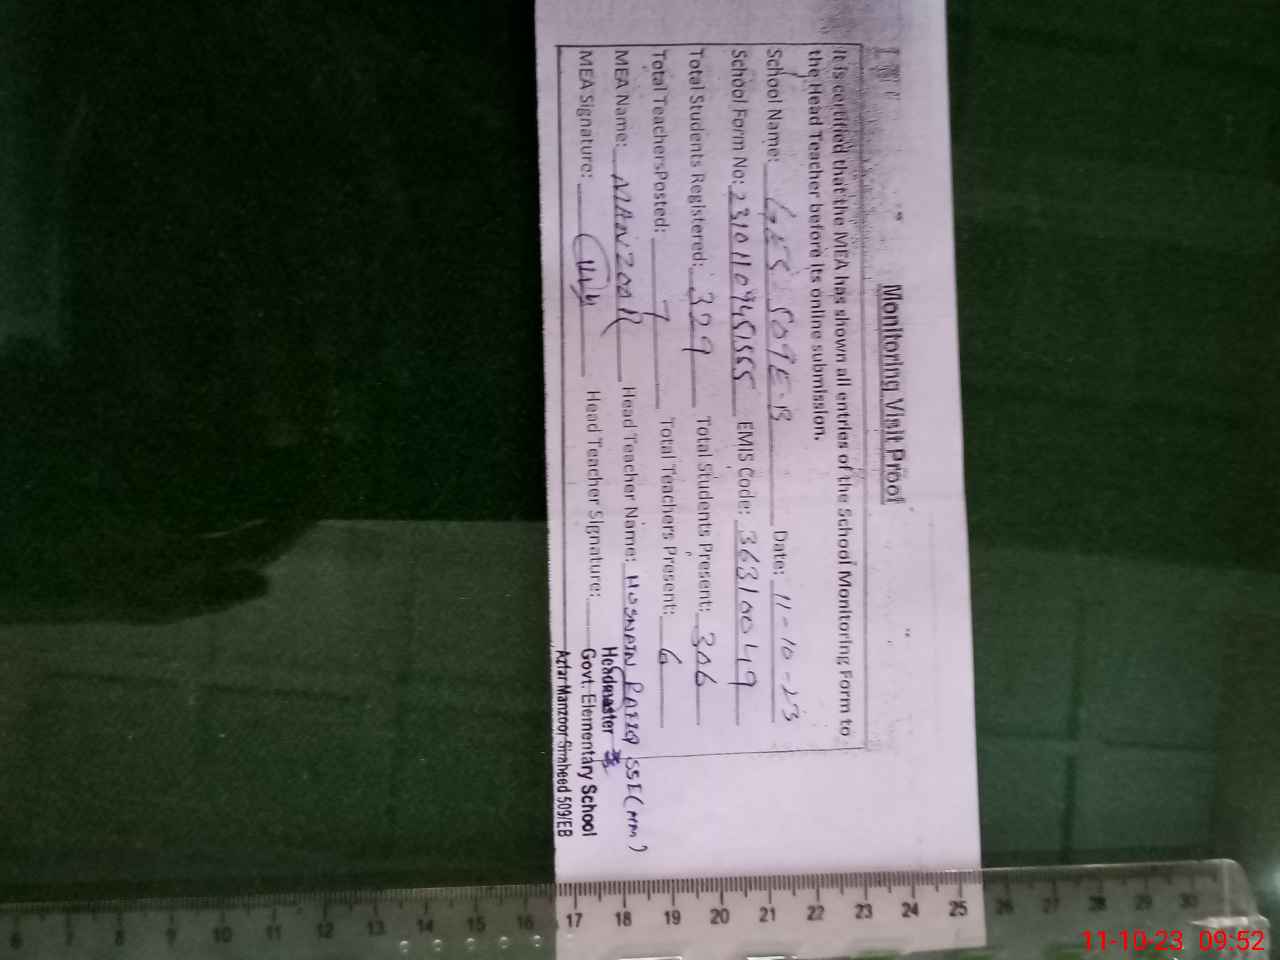 Monitoring Visit Proof
It is certified that the MEA has shown all entries of the School Monitoring Form to
the Head Teacher before its online submission.
School Name: GES 509E-B Date: 11-10-23
School Form No: EMIS Code: 36310049
Total Students Registered: 329 Total Students Present: 306
Total TeachersPosted: 7 Total Teachers Present: 6
MEA Name: MANZOOR Head Teacher Name: HUSNAIN RAFIQ SSE(
MEA Signature: Head Teacher Signature:
Headmaster
Govt. Elementary School
Manzoor 509/EB
6 7 8 9 10 11 12 13 14 15 16 17 18 19 20 21 22 23 24 25 26 27 28 29 30
11-10-23 09:52